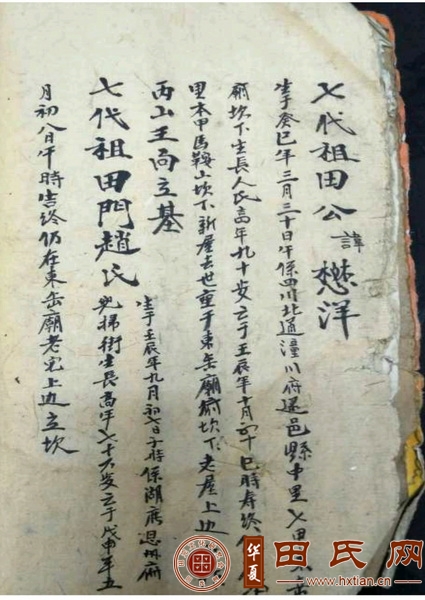 七代祖田公 諱 懋洋
生于癸巳年三月三十日午係四川北道潼川府遂邑縣中里七甲
廟坎下生長人氏高年九十岁亡于壬辰年十月初十巳時寿终
里本甲馬鞍山坎下新屋去世葬于東岳廟坎下老屋上边
丙山壬向立墓
七代祖田門趙氏 生于壬辰年九月初七日子時係湖廣恩州府
掃街生長高年七十六岁亡于戊申年五
月初八日午時告终仍在東岳廟老宅上边立坎
華夏
田氏网
www.hxtian.cn